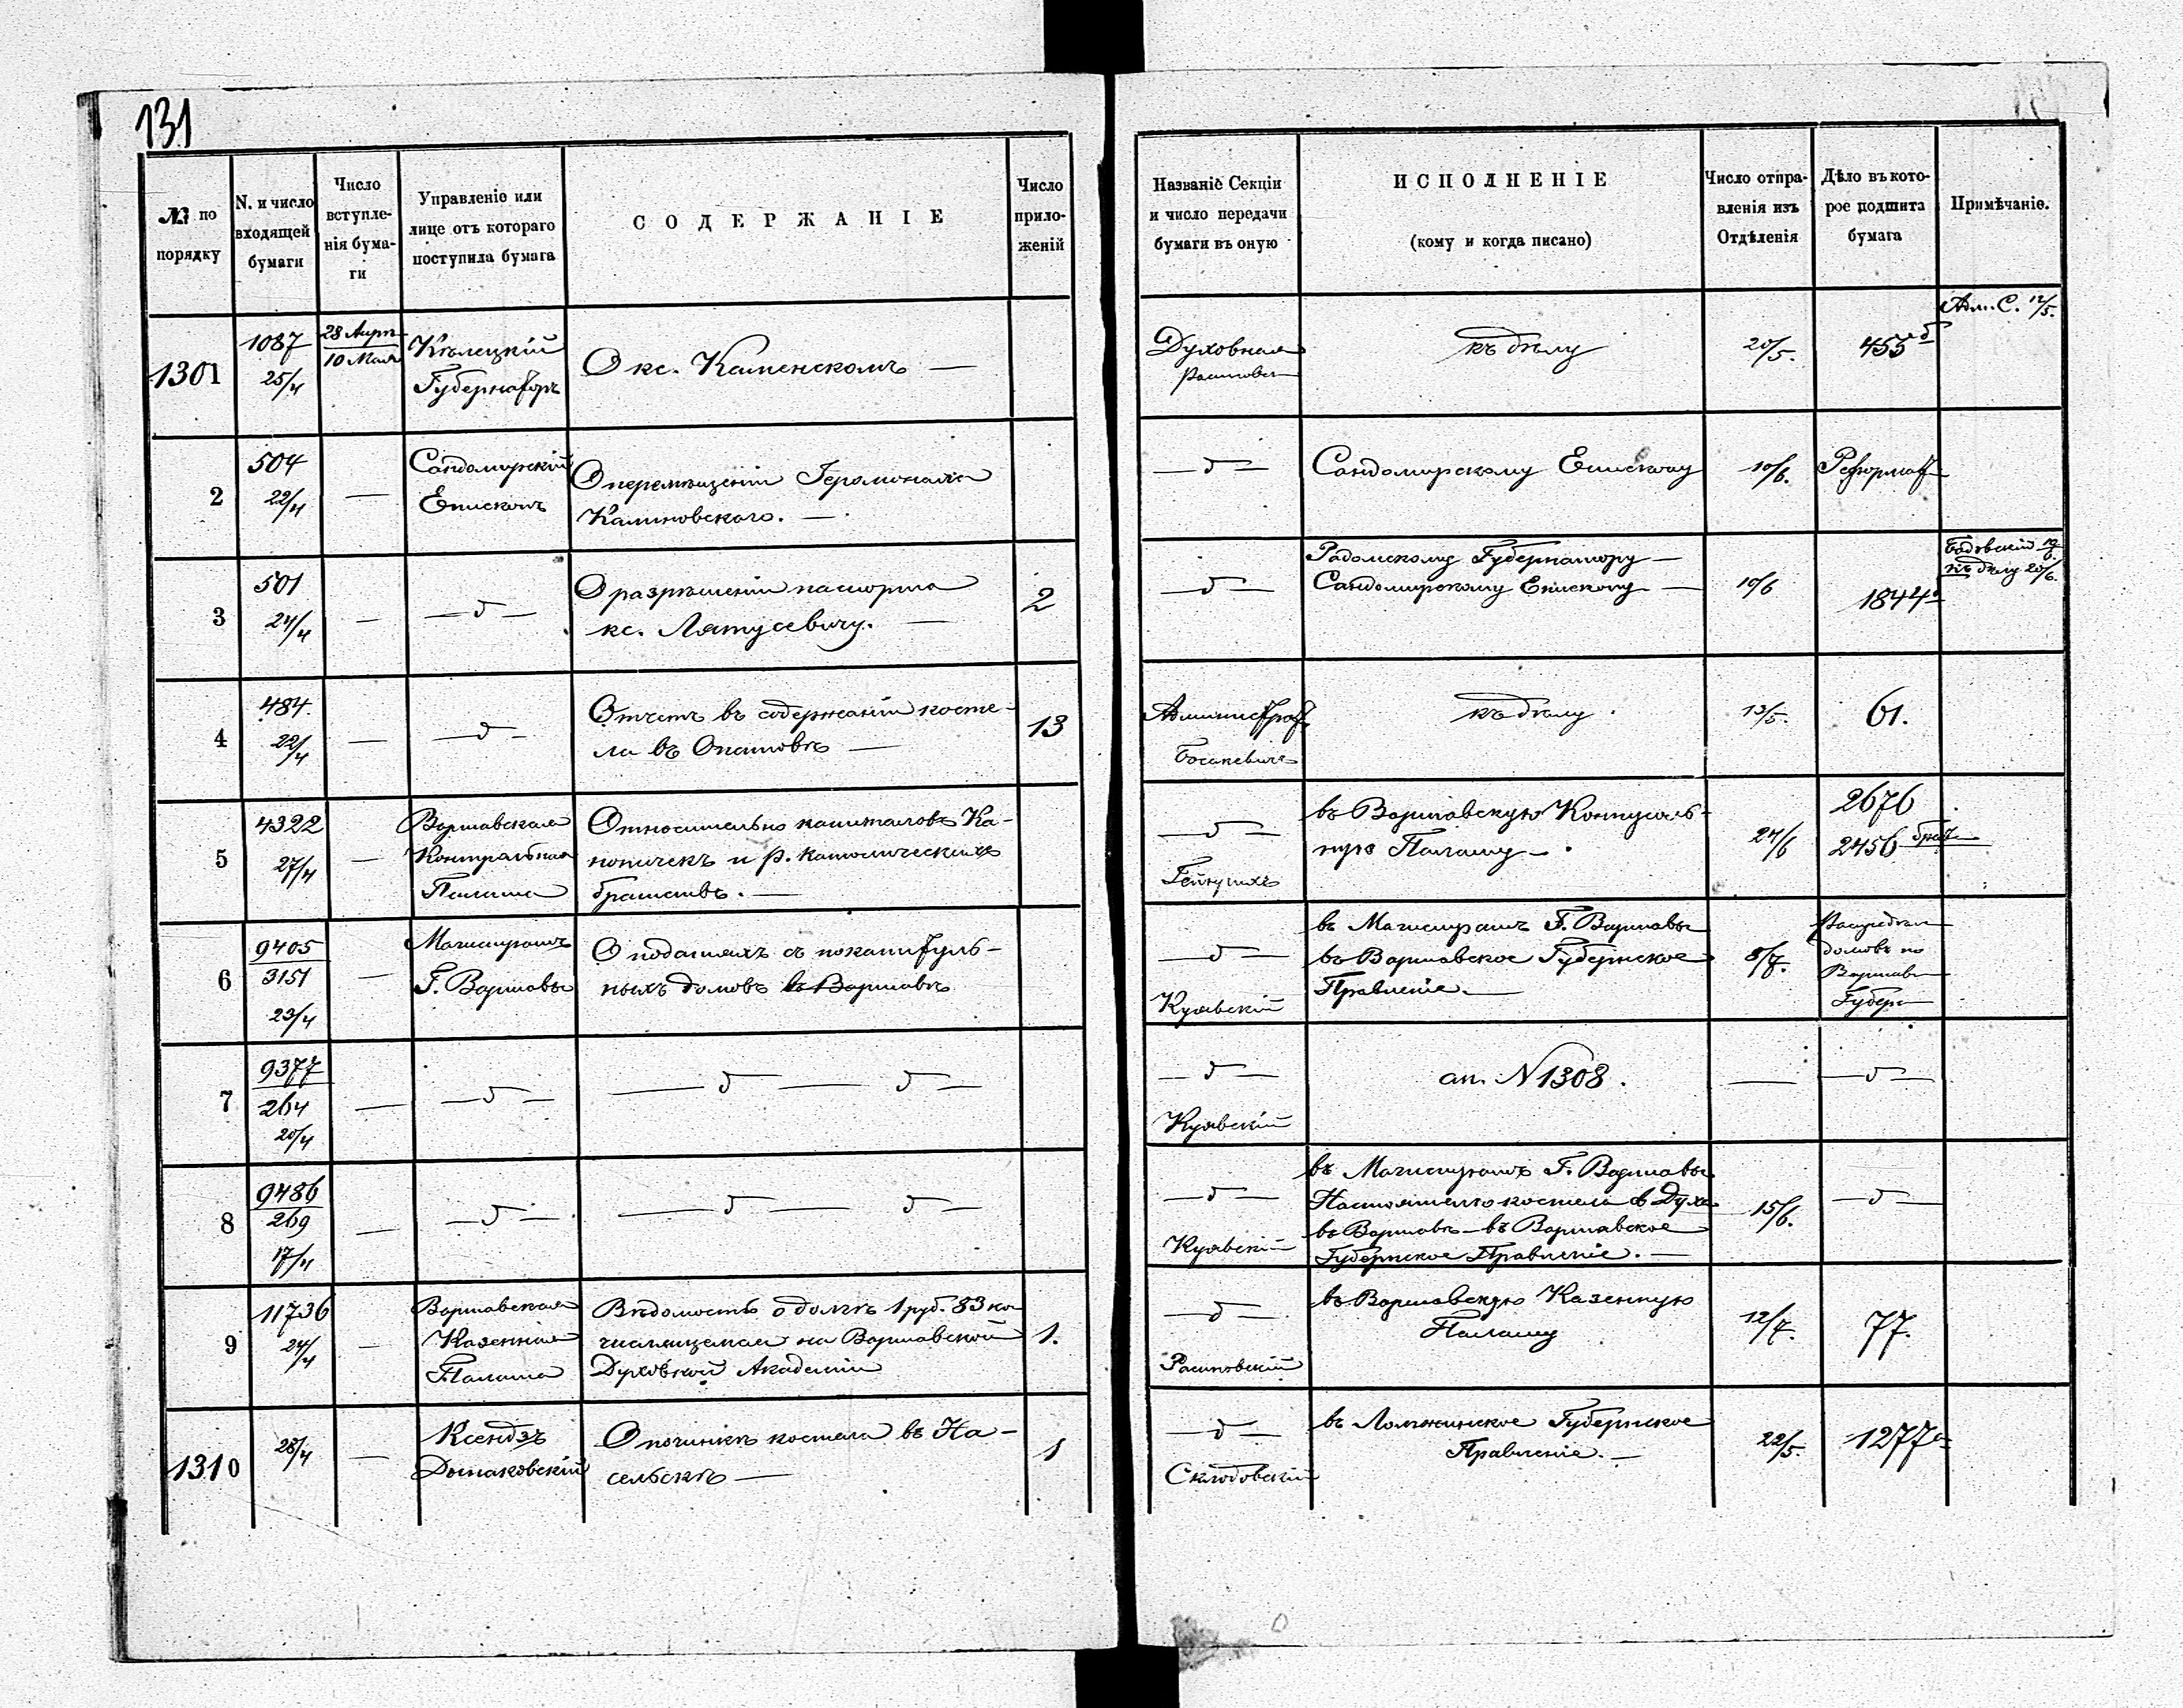 131
№ по порядку
N. и число входящей бумаги
Число вступле- нія бума- ги
Управленіе или лице отъ котораго поступила бумага
СОДЕРЖАНІЕ
Число прило- женій
Названіе Секціи и число передачи бумаги въ оную
ИСПОЛНЕНІЕ
(кому и когда писано)
Число отпра- вленія изъ Отдѣленія
Дѣло въ кото- рое подшита бумага
Примѣчаніе.
1301
1087
25/4
28 Апрѣ
10 Мая
Кѣлецкій
Губернаторъ
О кс. Каменскомъ —
Духовная
къ дѣлу
20/5.
455
Адм. С. 12/5.
2
504
22/4
—
Сандомирскій
Епископъ
О перемѣщеніи Іеромонаха
Калиновскаго. —
— д —
Сандомирскому Епископу
10/6.
Реформат
3
501
24/4
—
— д —
О разрѣшеніи паспорта
кс. Лятусевичу. —
2
— д —
Радомскому Губернатору —
Сандомирскому Епископу —
10/6
1844
къ дѣлу 20/6.
4
484
22/4
—
— д —
Отчетъ въ содержаніи косте-
ла въ Опатовѣ —
13
Администрат
къ дѣлу.
13/5.
61.
5
4322
27/4
—
Варшавская
Контрольная
Палата
Относительно капиталовъ Ка-
ноничекъ и р. католическихъ
братствъ. —
— д —
въ Варшавскую Контроль-
ную Палату —.
24/6
2676
2456
6
9405
3151
23/4
—
Магистратъ
Г. Варшавы
О податяхъ съ покапитуль-
ныхъ домовъ въ Варшавѣ
— д —
Куявскій
въ Магистратъ Г. Варшавы
въ Варшавское Губернское
Правленіе. —
8/7.
домовъ по
Варшав
Губерн
7
9377
264
20/4
—
— д —
— д — д —
— д —
Куявскій
ап. N 1308.
—
— д —
8
9486
269
17/4
—
— д —
— д — д —
— д —
Куявскій
въ Магистратъ Г. Варшавы
Настоятелю костела св Духа
въ Варшавѣ — въ Варшавское
Губернское Правленіе. —
15/6.
— д —
9
11736
24/4
—
Варшавская
Казенная
Палата
Вѣдомость о долгѣ 1 руб. 83 ко
числящемся на Варшавской
Духовной Академіи
1.
— д —
въ Варшавскую Казенную
Палату
12/7.
77.
1310
28/4
—
Ксендзъ
О починкѣ костела въ На-
сельскѣ —
1
— д —
Склодовскій
въ Ломжинское Губернское
Правленіе. —
22/5.
1277